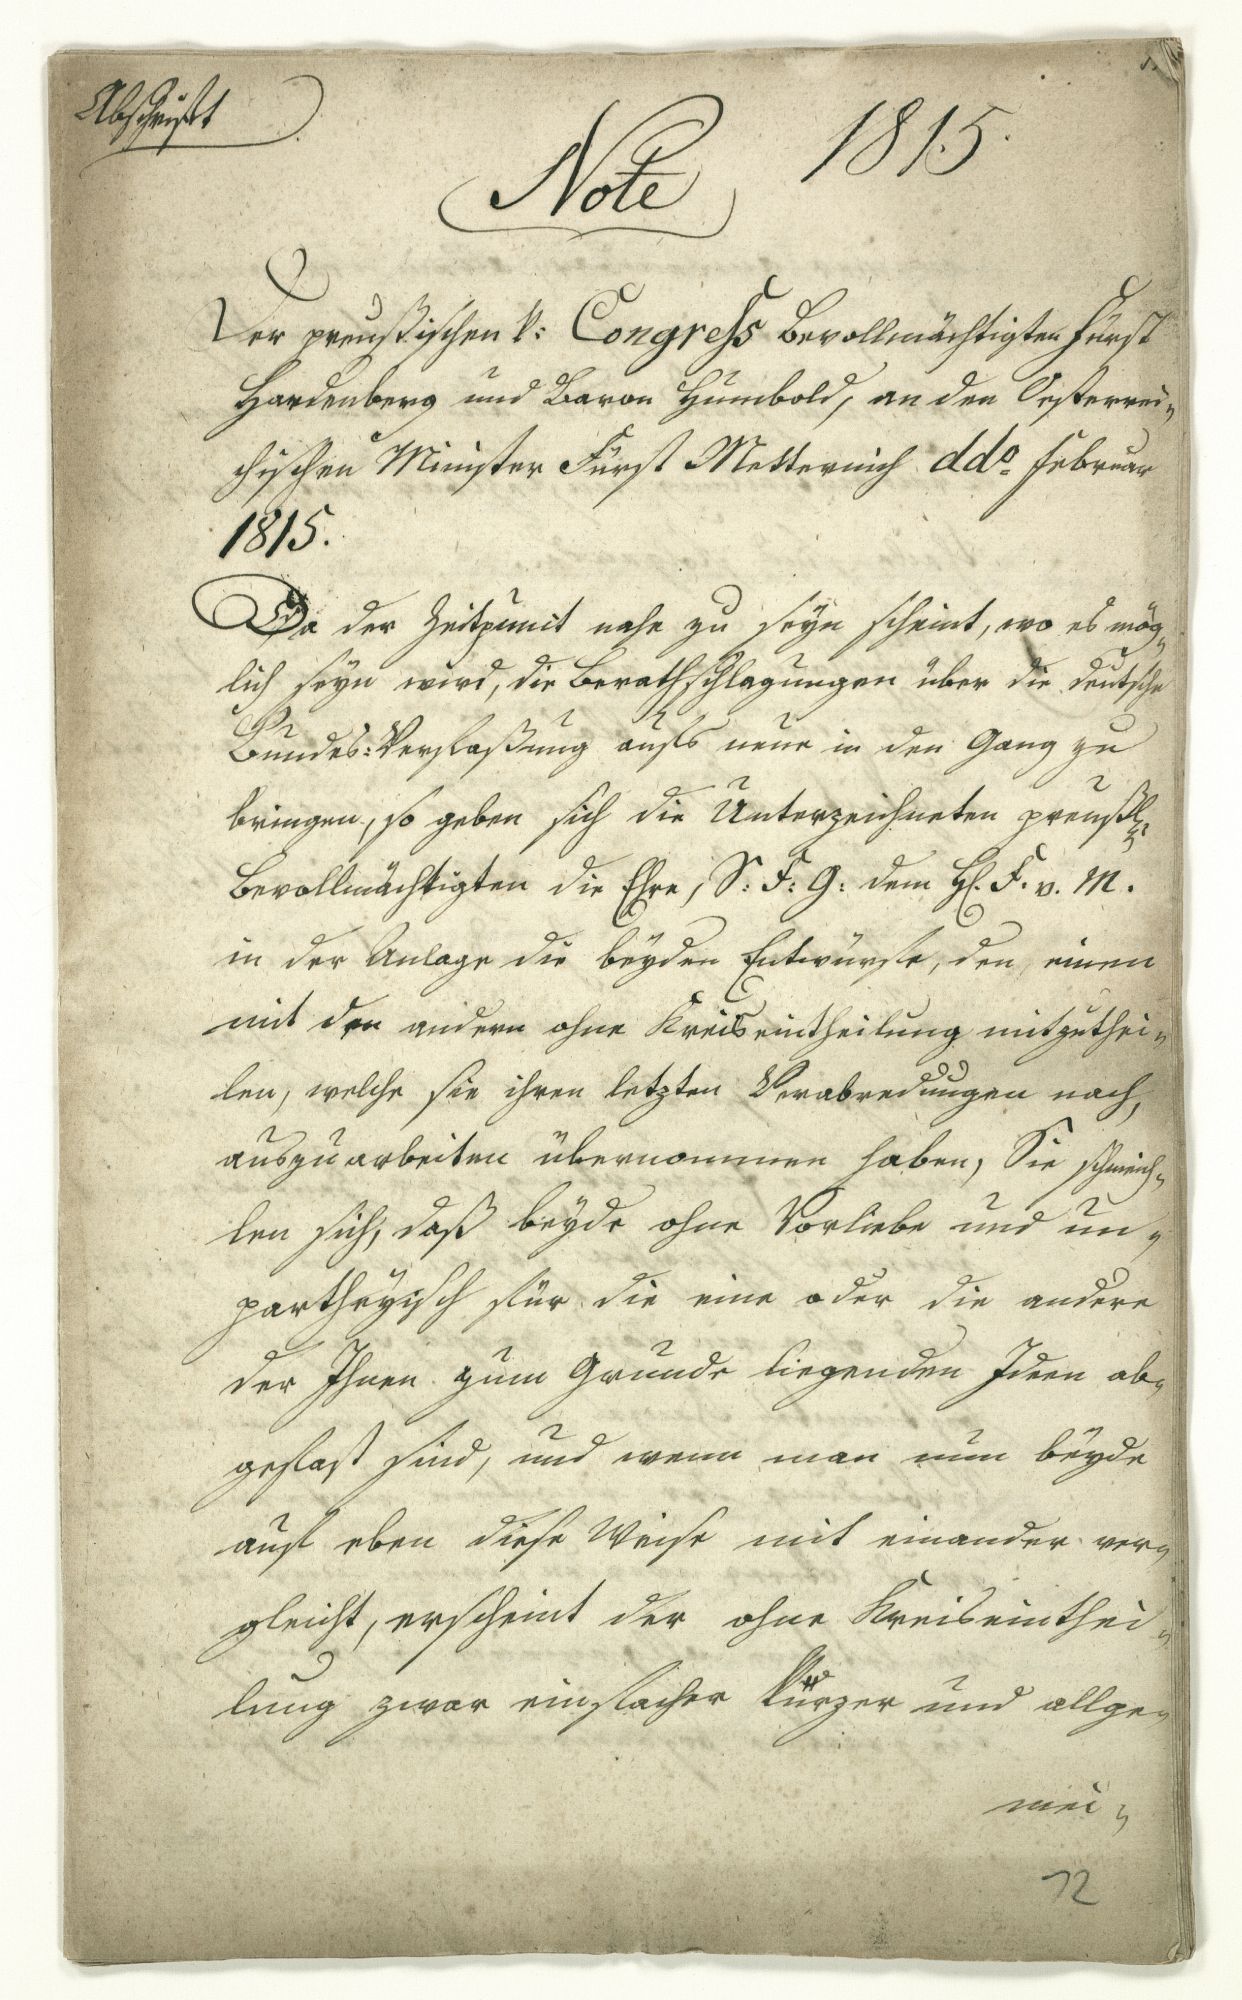 Abschrift
1815.
Note
Der preußischen k: Congreſs Bevollmächtigten Fürst
Hardenberg und Baron Humbold, an den Oesterrei=
chischen Minister Fürst Metternich ddo Februar
1815.
Da der Zeitpunct nahe zu seyn scheint, wo es mög=
lich seyn wird, die Berathschlagungen über die deutsche
Bundes=Verfaßung aufs neue in den Gang zu
bringen, so geben sich die Unterzeichneten preußl:
Bevollmächtigten die Ehre, S: F: G: dem H. F. v. M.
in der Anlage die beyden Entwürfe, den einen
mit den andern ohne Kreiseintheilung mitzuthei=
len, welche sie ihren letzten Verabredungen nach,
auszuarbeiten übernommen haben, Sie schmeich=
len sich, daß beyde ohne Vorliebe und un=
partheyisch für die eine oder die andere
der Ihnen zum Grunde liegenden Ideen ab=
gefast sind, und wenn man nun beyde
auf eben diese Weise mit einander ver=
gleicht, erscheint der ohne Kreiseinthei=
lung zwar einfacher kürzer und allge=
mei=
12